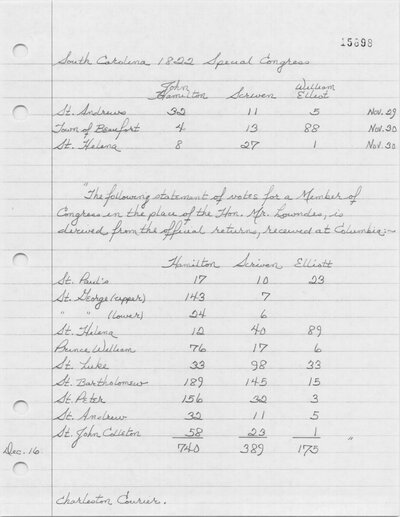 15698
South Carolina 1822 Special Congress
John Hamilton Scriven William Elliot
St. Andrews 32 11 5 Nov. 29
Town of Beaufort 4 13 88 Nov. 30
St. Helena 8 27 1 Nov. 30
"The following statement of votes for a Member of
Congress in the place of the Hon. Mr. Lowndes, is
derived from the official returns, received at Columbia:—
Hamilton Scriven Elliott
St. Paul's 17 10 23
St. George (upper) 143 7
" " (lower) 24 6
St. Helena 12 40 89
Prince William 76 17 6
St. Luke 33 98 33
St. Bartholomew 189 145 15
St. Peter 156 32 3
St. Andrew 32 11 5
St. John Colleton 58 23 1
Dec. 16. 740 389 175 "
Charleston Courier.